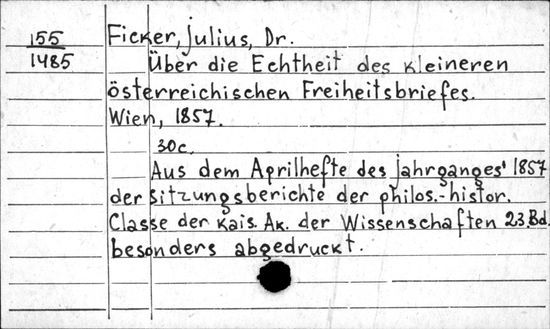 155
1485
Ficker, Julius, Dr.
Über die Echtheit des kleineren
österreichischen Freiheitsbriefes.
Wien, 1857.
30c.
Aus dem Aprilhefte des Jahrganges' 1857
der Sitzungsberichte der philos.-histor.
Classe der Kais. Ak. der Wissenschaften 23. Bd.
besonders abgedruckt.